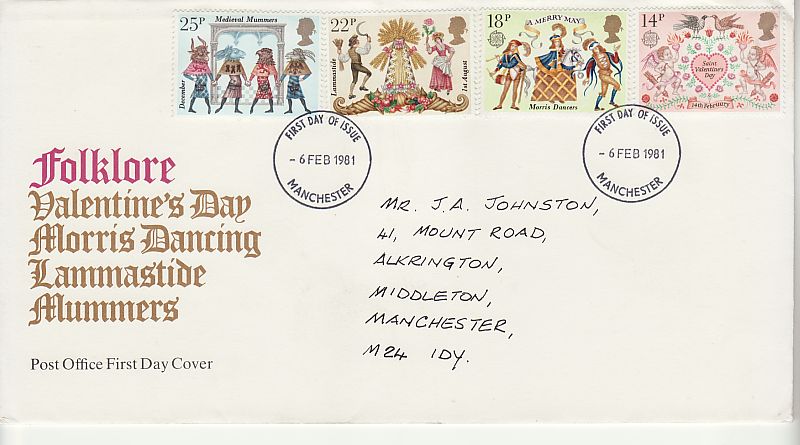 25P
Medieval Mummers
December
22P
Lammastide
1st August
18P
A MERRY MAY
Morris Dancers
14P
Saint
Valentine's
Day
14th February
FIRST DAY OF ISSUE
- 6 FEB 1981
MANCHESTER
FIRST DAY OF ISSUE
- 6 FEB 1981
MANCHESTER
Folklore
Valentine's Day
Morris Dancing
Lammastide
Mummers
Post Office First Day Cover
MR. J.A. JOHNSTON,
41, MOUNT ROAD,
ALKRINGTON,
MIDDLETON,
MANCHESTER,
M24 1DY.